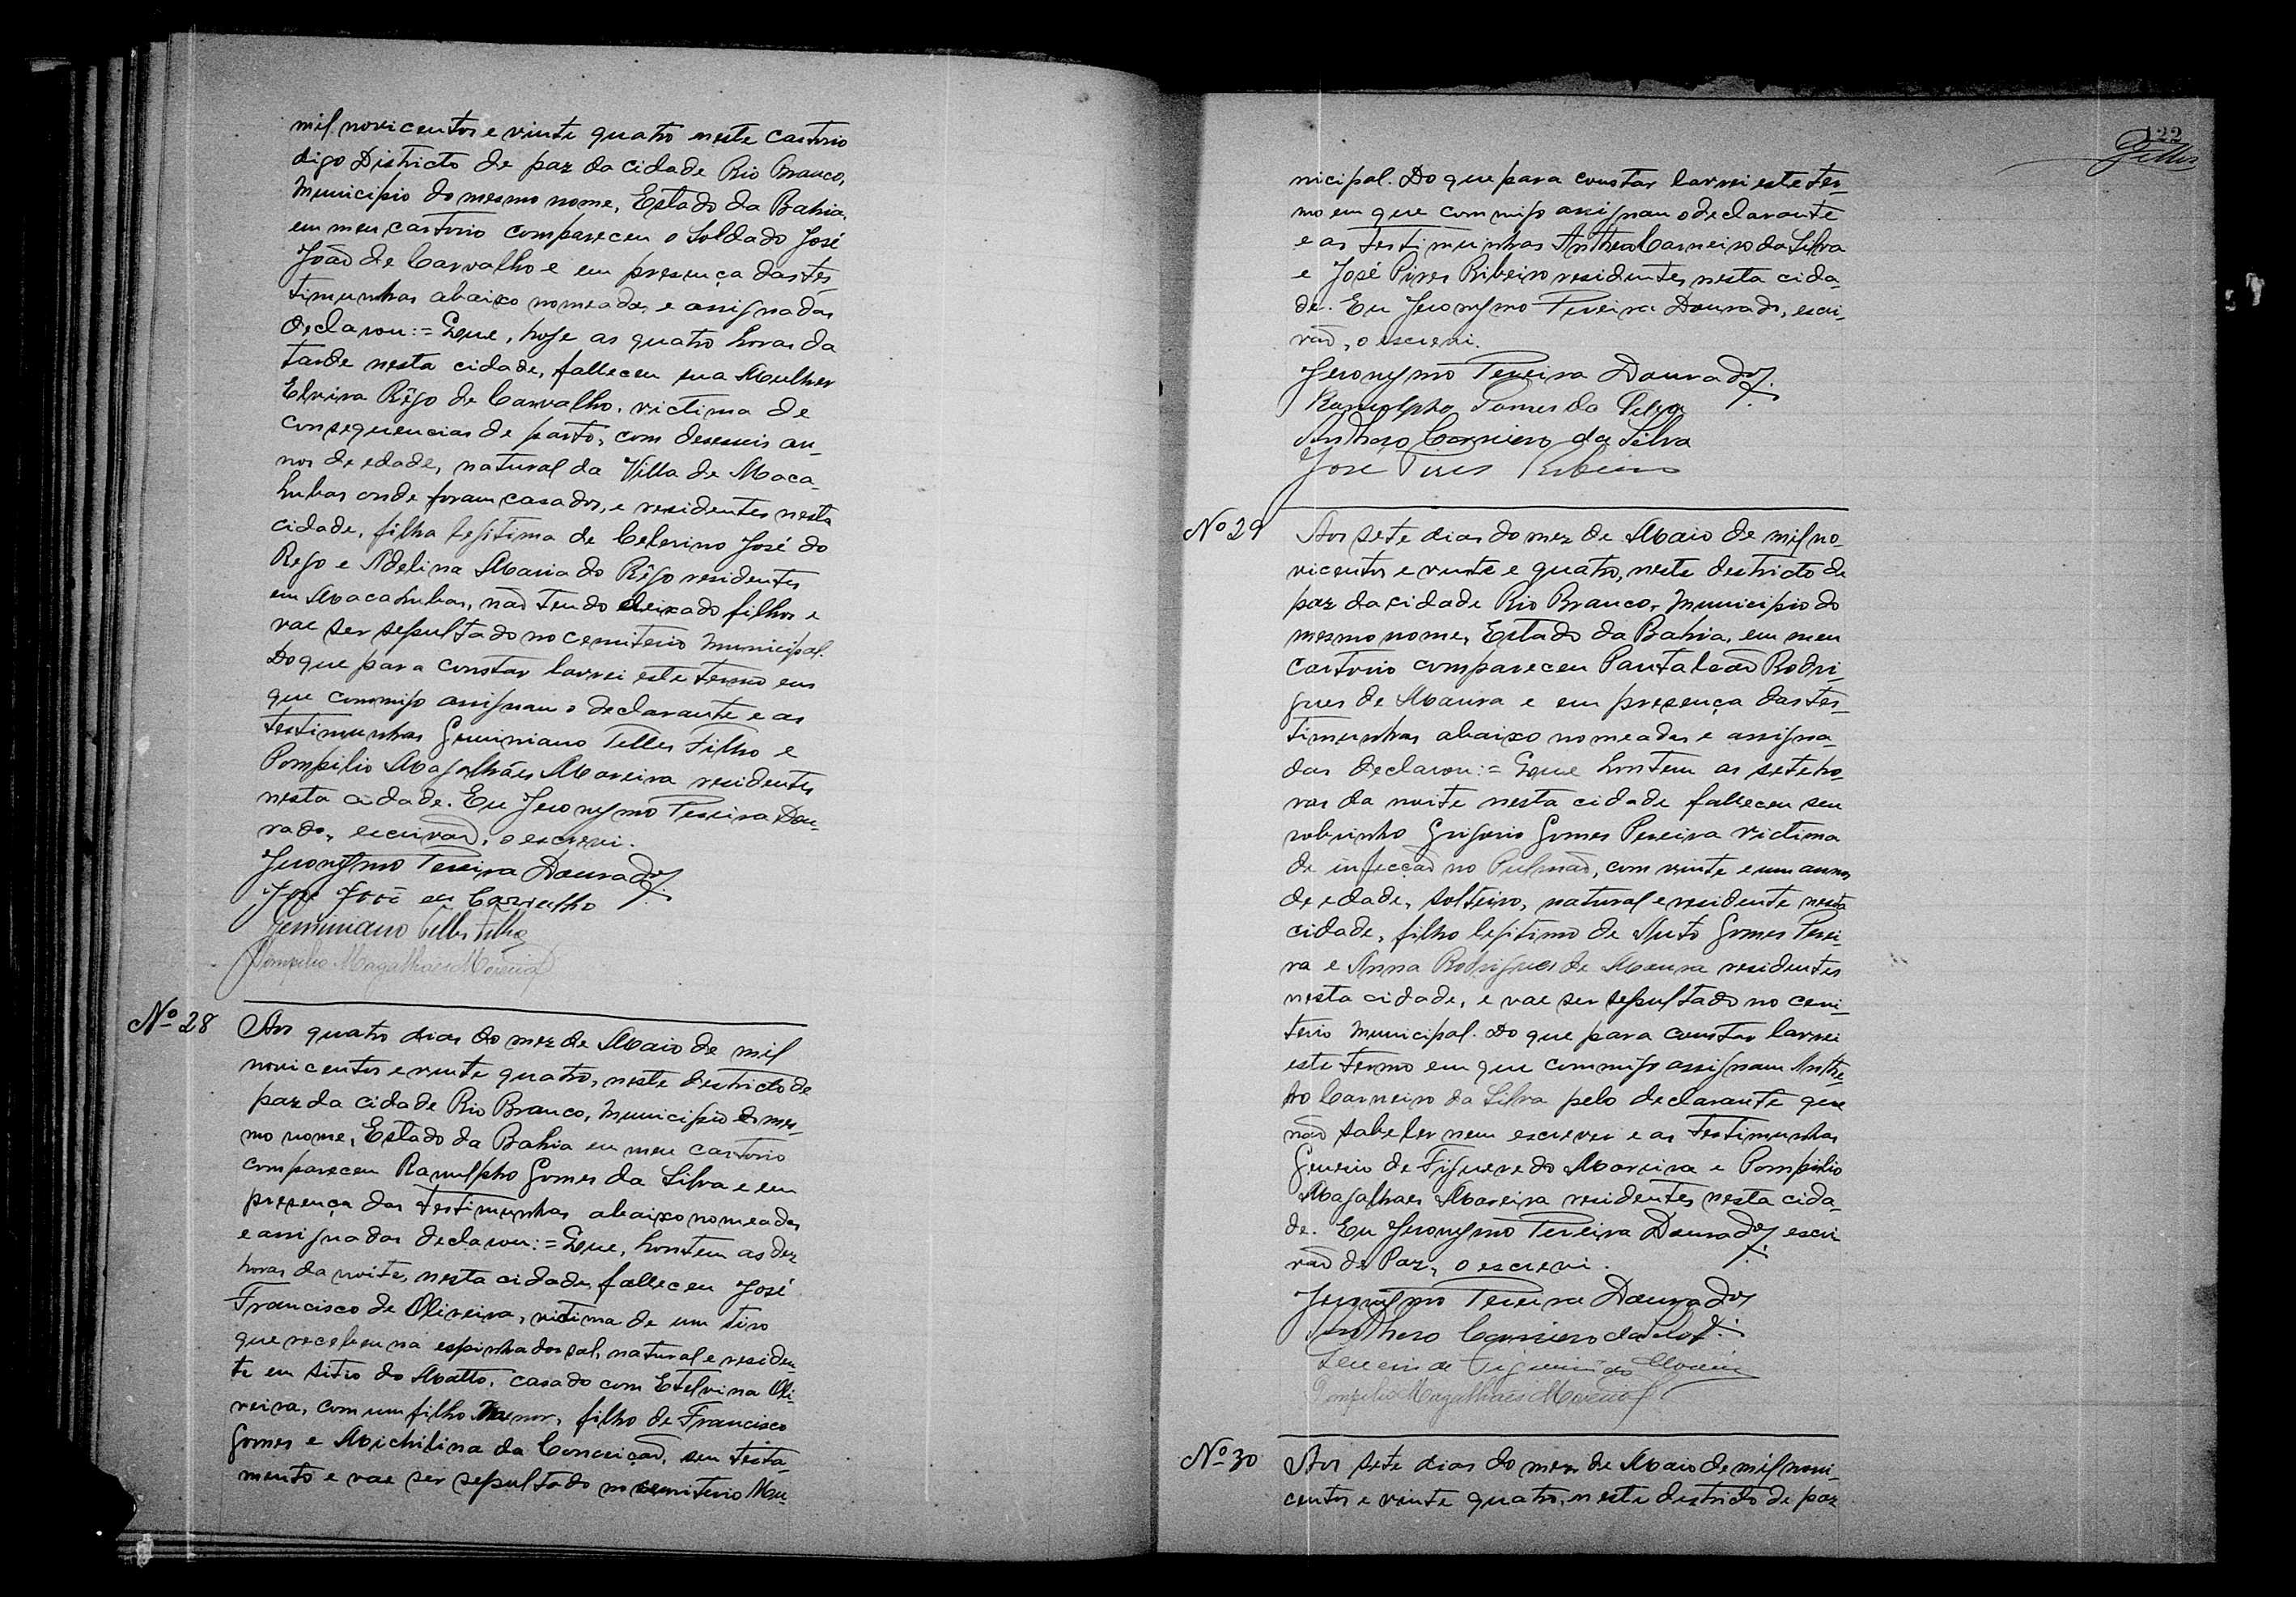 mil novicentos e vinte quatro neste cartorio
digo Districto de paz da cidade Rio Branco,
Municipio do mesmo nome, Estado da Bahia,
em meu cartorio compareceu o Soldado José
João de Carvalho e em presença das tes-
timunhas abaixo nomeadas e assignadas
declarou:= Que, hoje as quatro horas da
tarde nesta cidade, falleceu sua Mulher
Elvira Rêgo de Carvalho, victima de
consequencias de parto, com deseseis an-
nos de edade, natural da Villa de Maca-
hubas onde foram casados, e residentes nesta
cidade, filha legitima de Celerino José do
Rego e Adelina Maria do Rêgo residentes
em Macahubas, não tendo deixado filhos e
vae ser sepultado no cemiterio Municipal.
Do que para constar lavrei este termo em
que commigo assignam o declarante e as
testimunhas Geminiano Telles Filho e
Pompilio Magalhães Moreira residentes
nesta cidade. Eu Jeronymo Pereira Dou-
rado, escrivão, o escrevi.
Jeronymo Pereira Dourado
José João de Carvalho
Geminiano Telles Filho
Pompilio Magalhães Moreira
Nº 28 Aos quatro dias do mez de Maio de mil
novicentos e vinte quatro, neste destricto de
paz da cidade Rio Branco, Municipio do mes-
mo nome, Estado da Bahia em meu cartorio
compareceu Ranulpho Gomes da Silva e em
presença das testimunhas abaixo nomeadas
e assignadas declarou:= Que, hontem as dez
horas da noite, nesta cidade, falleceu José
Francisco de Oliveira, victima de um tiro
que recebeu na espinha dorsal, natural e residen-
te em sitio do Matto, casado com Etelvina Oli-
veira, com um filho Menor, filho de Francisco
Gomes e Michilina da Conceição, sem testa-
mento e vae ser sepultado no cemiterio Mu-
122
Telles
nicipal. Do que para constar lavrei este ter-
mo em que commigo assignam o declarante
e as testimunhas Anthero Carneiro da Silva
e José Pires Ribeiro residentes nesta cida-
de. Eu Jeronymo Pereira Dourado, escri-
vão, o escrevi.
Jeronymo Pereira Dourado
Ranulpho Gomes da Silva
Anthero Carneiro da Silva
José Pires Ribeiro
Nº 29 Aos sete dias do mez de Maio de mil no-
vicentos e vinte e quatro, neste destricto de
paz da cidade Rio Branco, Municipio do
mesmo nome, Estado da Bahia, em meu
cartorio compareceu Pantaleão Rodri-
gues de Moura e em presença das tes-
timunhas abaixo nomeadas e assigna-
das declarou:= Que hontem as sete ho-
ras da noite nesta cidade falleceu seu
sobrinho Grigorio Gomes Pereira victima
de infecção no Pulmão, com vinte e um annos
de edade, solteiro, natural e residente nesta
cidade, filho legitimo de Gomes Perei-
ra e Anna Rodrigues de Moura residentes
nesta cidade, e vae ser sepultado no cemi-
terio Municipal. Do que para constar lavrei
este termo em que commigo assignam Anthe-
ro Carneiro da Silva pelo declarante que
não sabe ler nem escrever e as testimunhas
de Figueredo Moreira e Pompilio
Magalhaes Moreira residentes nesta cida-
de. Eu Jeronymo Pereira Dourado escri
vão de Paz, o escrevi.
Jeronymo Pereira Dourado
Anthero Carneiro da Silva
de Figueiredo Moreira
Pompilio Magalhães Moreira
Nº 30 Aos sete dias do mez de Maio de mil novi-
centos e vinte quatro, neste destricto de paz